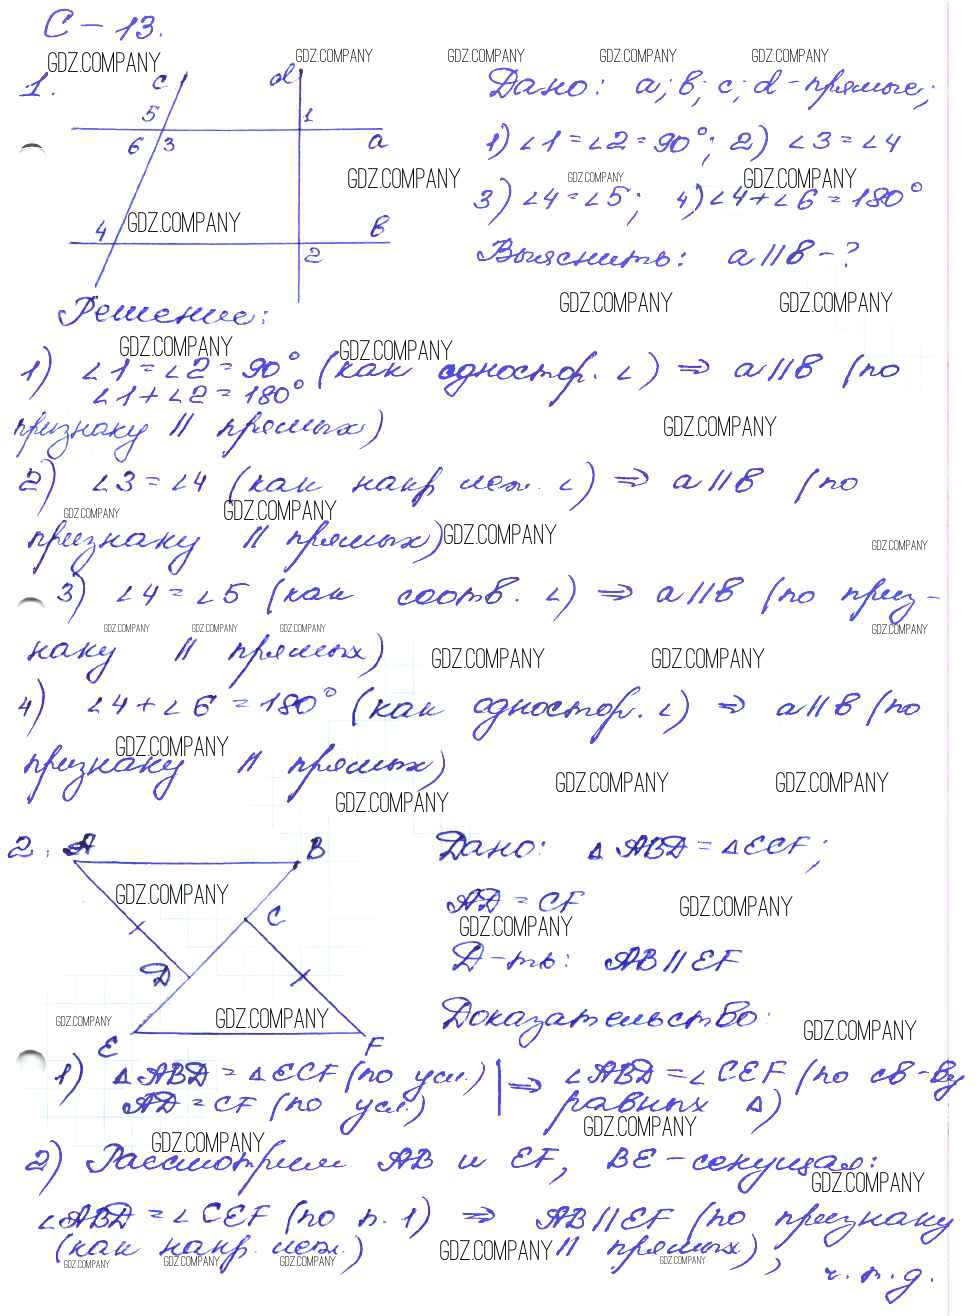 С – 13.
1.
c
d
5
1
6
3
a
4
в
2
Дано: a; в; c; d – прямые;
1) ∠1 = ∠2 = 90°; 2) ∠3 = ∠4
3) ∠4 = ∠5; 4) ∠4 + ∠6 = 180°
Выяснить: a || в – ?
Решение:
1) ∠1 = ∠2 = 90° (как одностор. ∠) ⇒ a || в (по
∠1 + ∠2 = 180°
признаку || прямых)
2) ∠3 = ∠4 (как накр леж. ∠) ⇒ a || в (по
признаку || прямых)
3) ∠4 = ∠5 (как соотв. ∠) ⇒ a || в (по приз-
наку || прямых)
4) ∠4 + ∠6 = 180° (как одностор. ∠) ⇒ a || в (по
признаку || прямых)
2.
A
B
C
D
E
F
Дано: △ABD = △ECF;
AD = CF
Д-ть: AB || EF
Доказательство:
1) △ABD = △ECF (по усл.) | ⇒ ∠ABD = ∠CEF (по св-ву
AD = CF (по усл.) равных △)
2) Рассмотрим AB и EF, BE – секущая:
∠ABD = ∠CEF (по п. 1) ⇒ AB || EF (по признаку
(как накр. леж.) || прямых),
ч.т.д.
GDZ.COMPANY